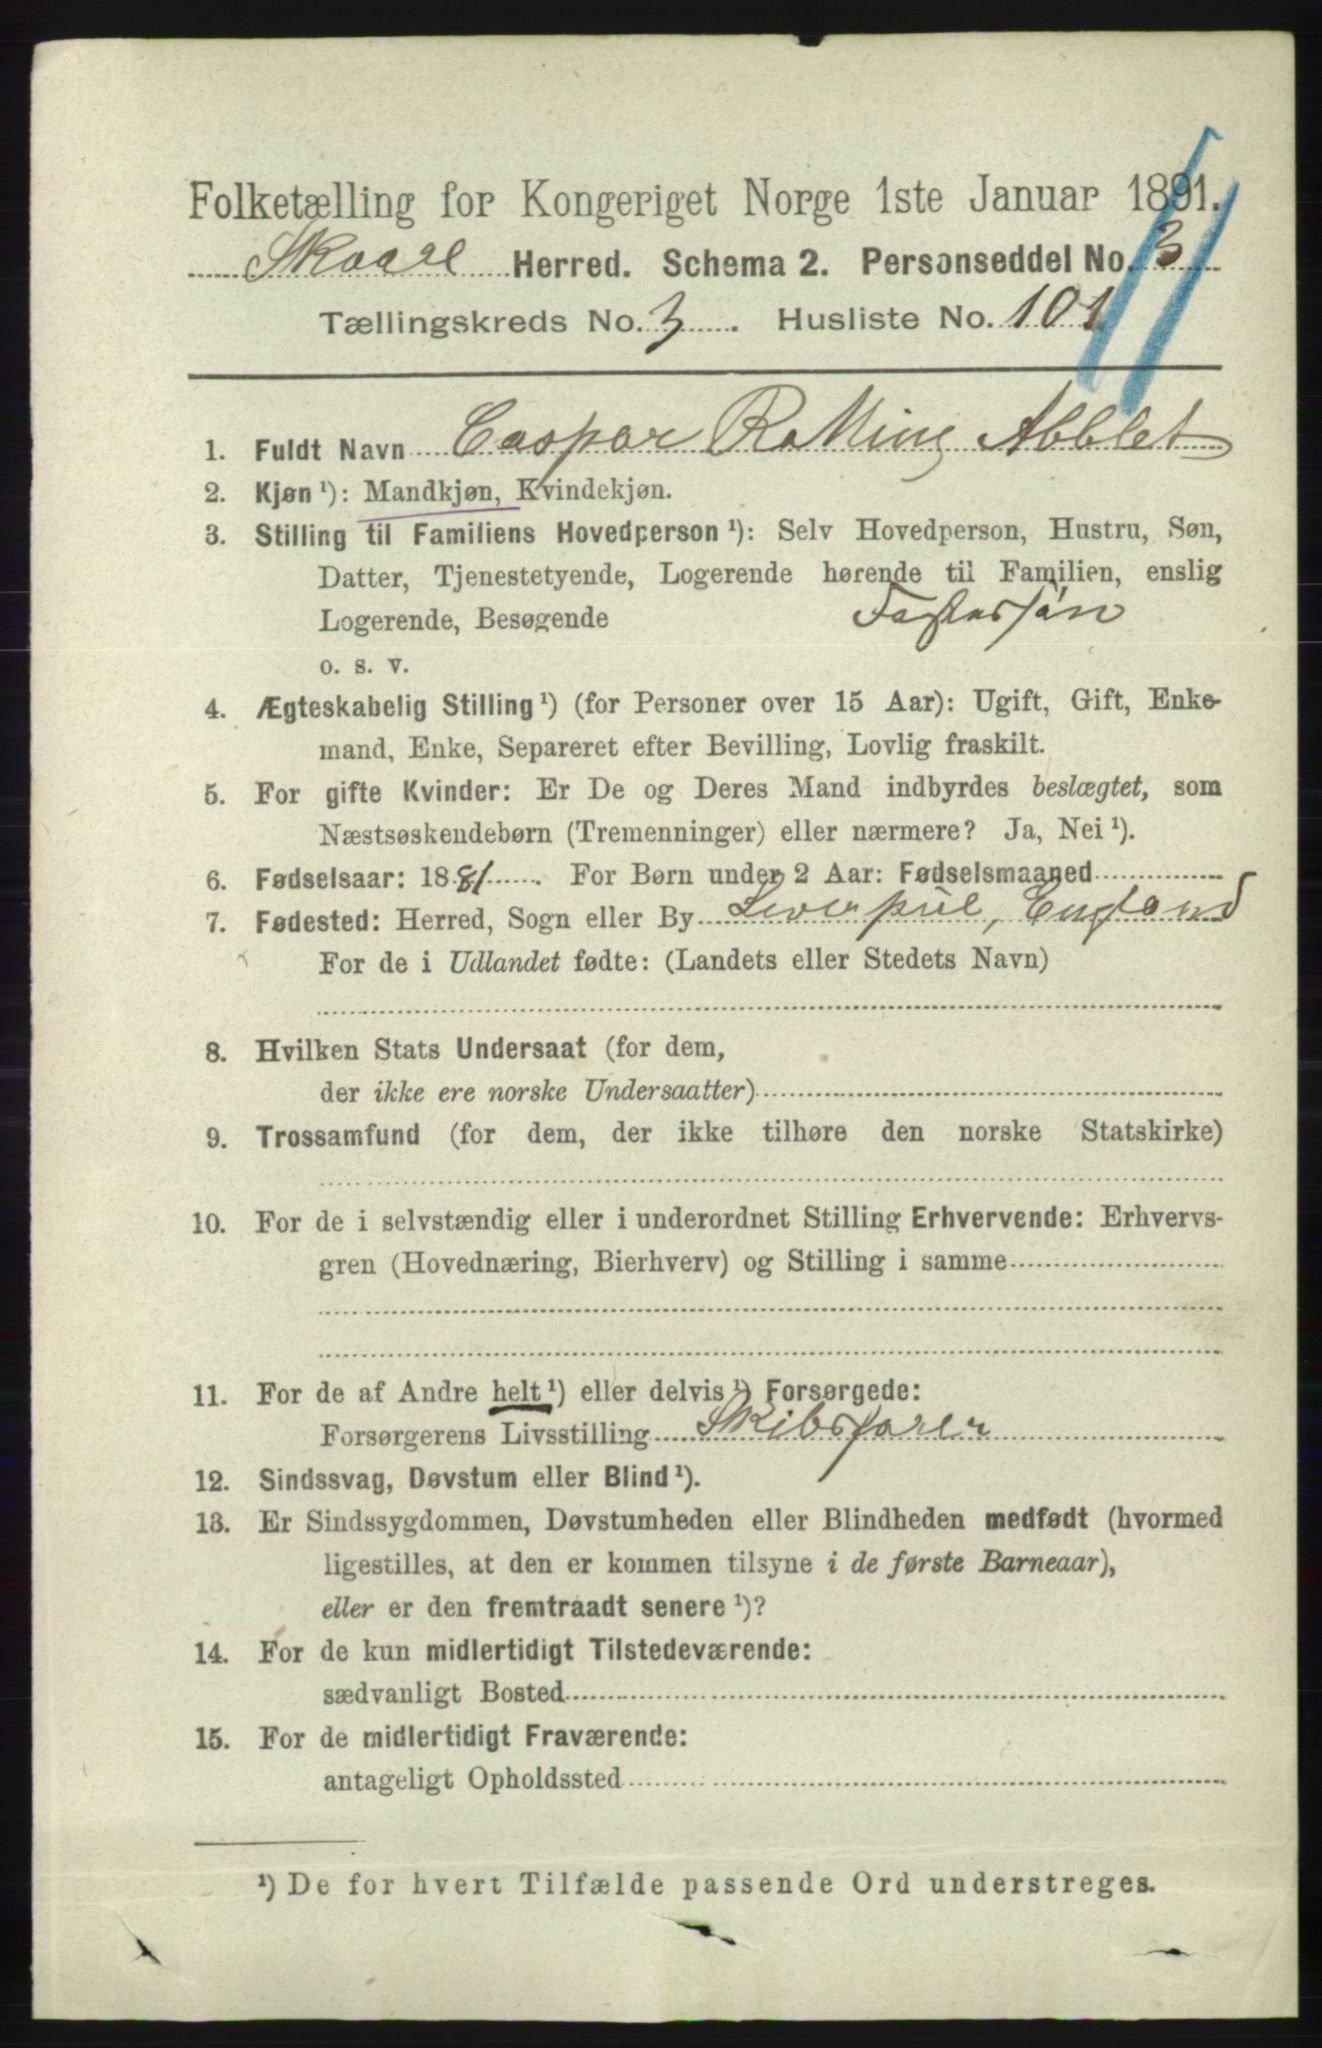 Folketælling for Kongeriget Norge 1ste Januar 1891.
Skaare Herred. Schema 2. Personseddel No. 3
Tællingskreds No. 3. Husliste No. 101
1. Fuldt Navn Caspar Abblet
2. Kjøn ¹): Mandkjøn, Kvindekjøn.
3. Stilling til Familiens Hovedperson ¹): Selv Hovedperson, Hustru, Søn,
Datter, Tjenestetyende, Logerende hørende til Familien, enslig
Logerende, Besøgende Fostersøn
o. s. v.
4. Ægteskabelig Stilling ¹) (for Personer over 15 Aar): Ugift, Gift, Enke-
mand, Enke, Separeret efter Bevilling, Lovlig fraskilt.
5. For gifte Kvinder: Er De og Deres Mand indbyrdes beslægtet, som
Næstsøskendebørn (Tremenninger) eller nærmere? Ja, Nei ¹).
6. Fødselsaar: 1881. For Børn under 2 Aar: Fødselsmaaned
7. Fødested: Herred, Sogn eller By Liverpul, England
For de i Udlandet fødte: (Landets eller Stedets Navn)
8. Hvilken Stats Undersaat (for dem,
der ikke ere norske Undersaatter)
9. Trossamfund (for dem, der ikke tilhøre den norske Statskirke)
10. For de i selvstændig eller i underordnet Stilling Erhvervende: Erhvervs-
gren (Hovednæring, Bierhverv) og Stilling i samme
11. For de af Andre helt ¹) eller delvis ¹) Forsørgede:
Forsørgerens Livsstilling Skibsfører
12. Sindssvag, Døvstum eller Blind ¹).
13. Er Sindssygdommen, Døvstumheden eller Blindheden medfødt (hvormed
ligestilles, at den er kommen tilsyne i de første Barneaar),
eller er den fremtraadt senere ¹)?
14. For de kun midlertidigt Tilstedeværende:
sædvanligt Bosted
15. For de midlertidigt Fraværende:
antageligt Opholdssted
¹) De for hvert Tilfælde passende Ord understreges.